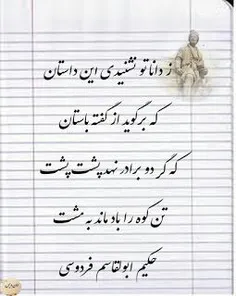 ز دانا تو نشنیدی این داستان
که برگوید از گفته باستان
که گر دو برادر نهد پشت پشت
تن کوه را باد ماند به مشت
حکیم ابوالقاسم فردوسی